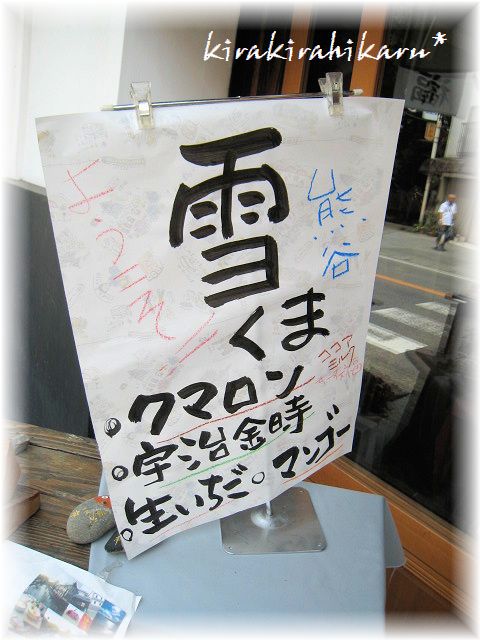 kirakirahikaru*
ようこそ!
熊谷
雪
くま
ココア
ミルク
クマロン
宇治金時
生いちご。マンゴー